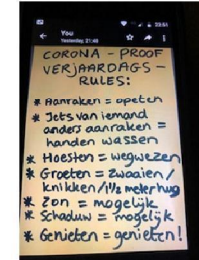 22:51
You
Yesterday, 21:48
CORONA - PROOF
VERJAARDAGS -
RULES:
* Aanraken = opeten
* Iets van iemand
anders aanraken =
handen wassen
* Hoesten = wegwezen
* Groeten = zwaaien/
knikken/1½ meter hug
* Zon = mogelijk
* Schaduw = mogelijk
* Genieten = genieten!